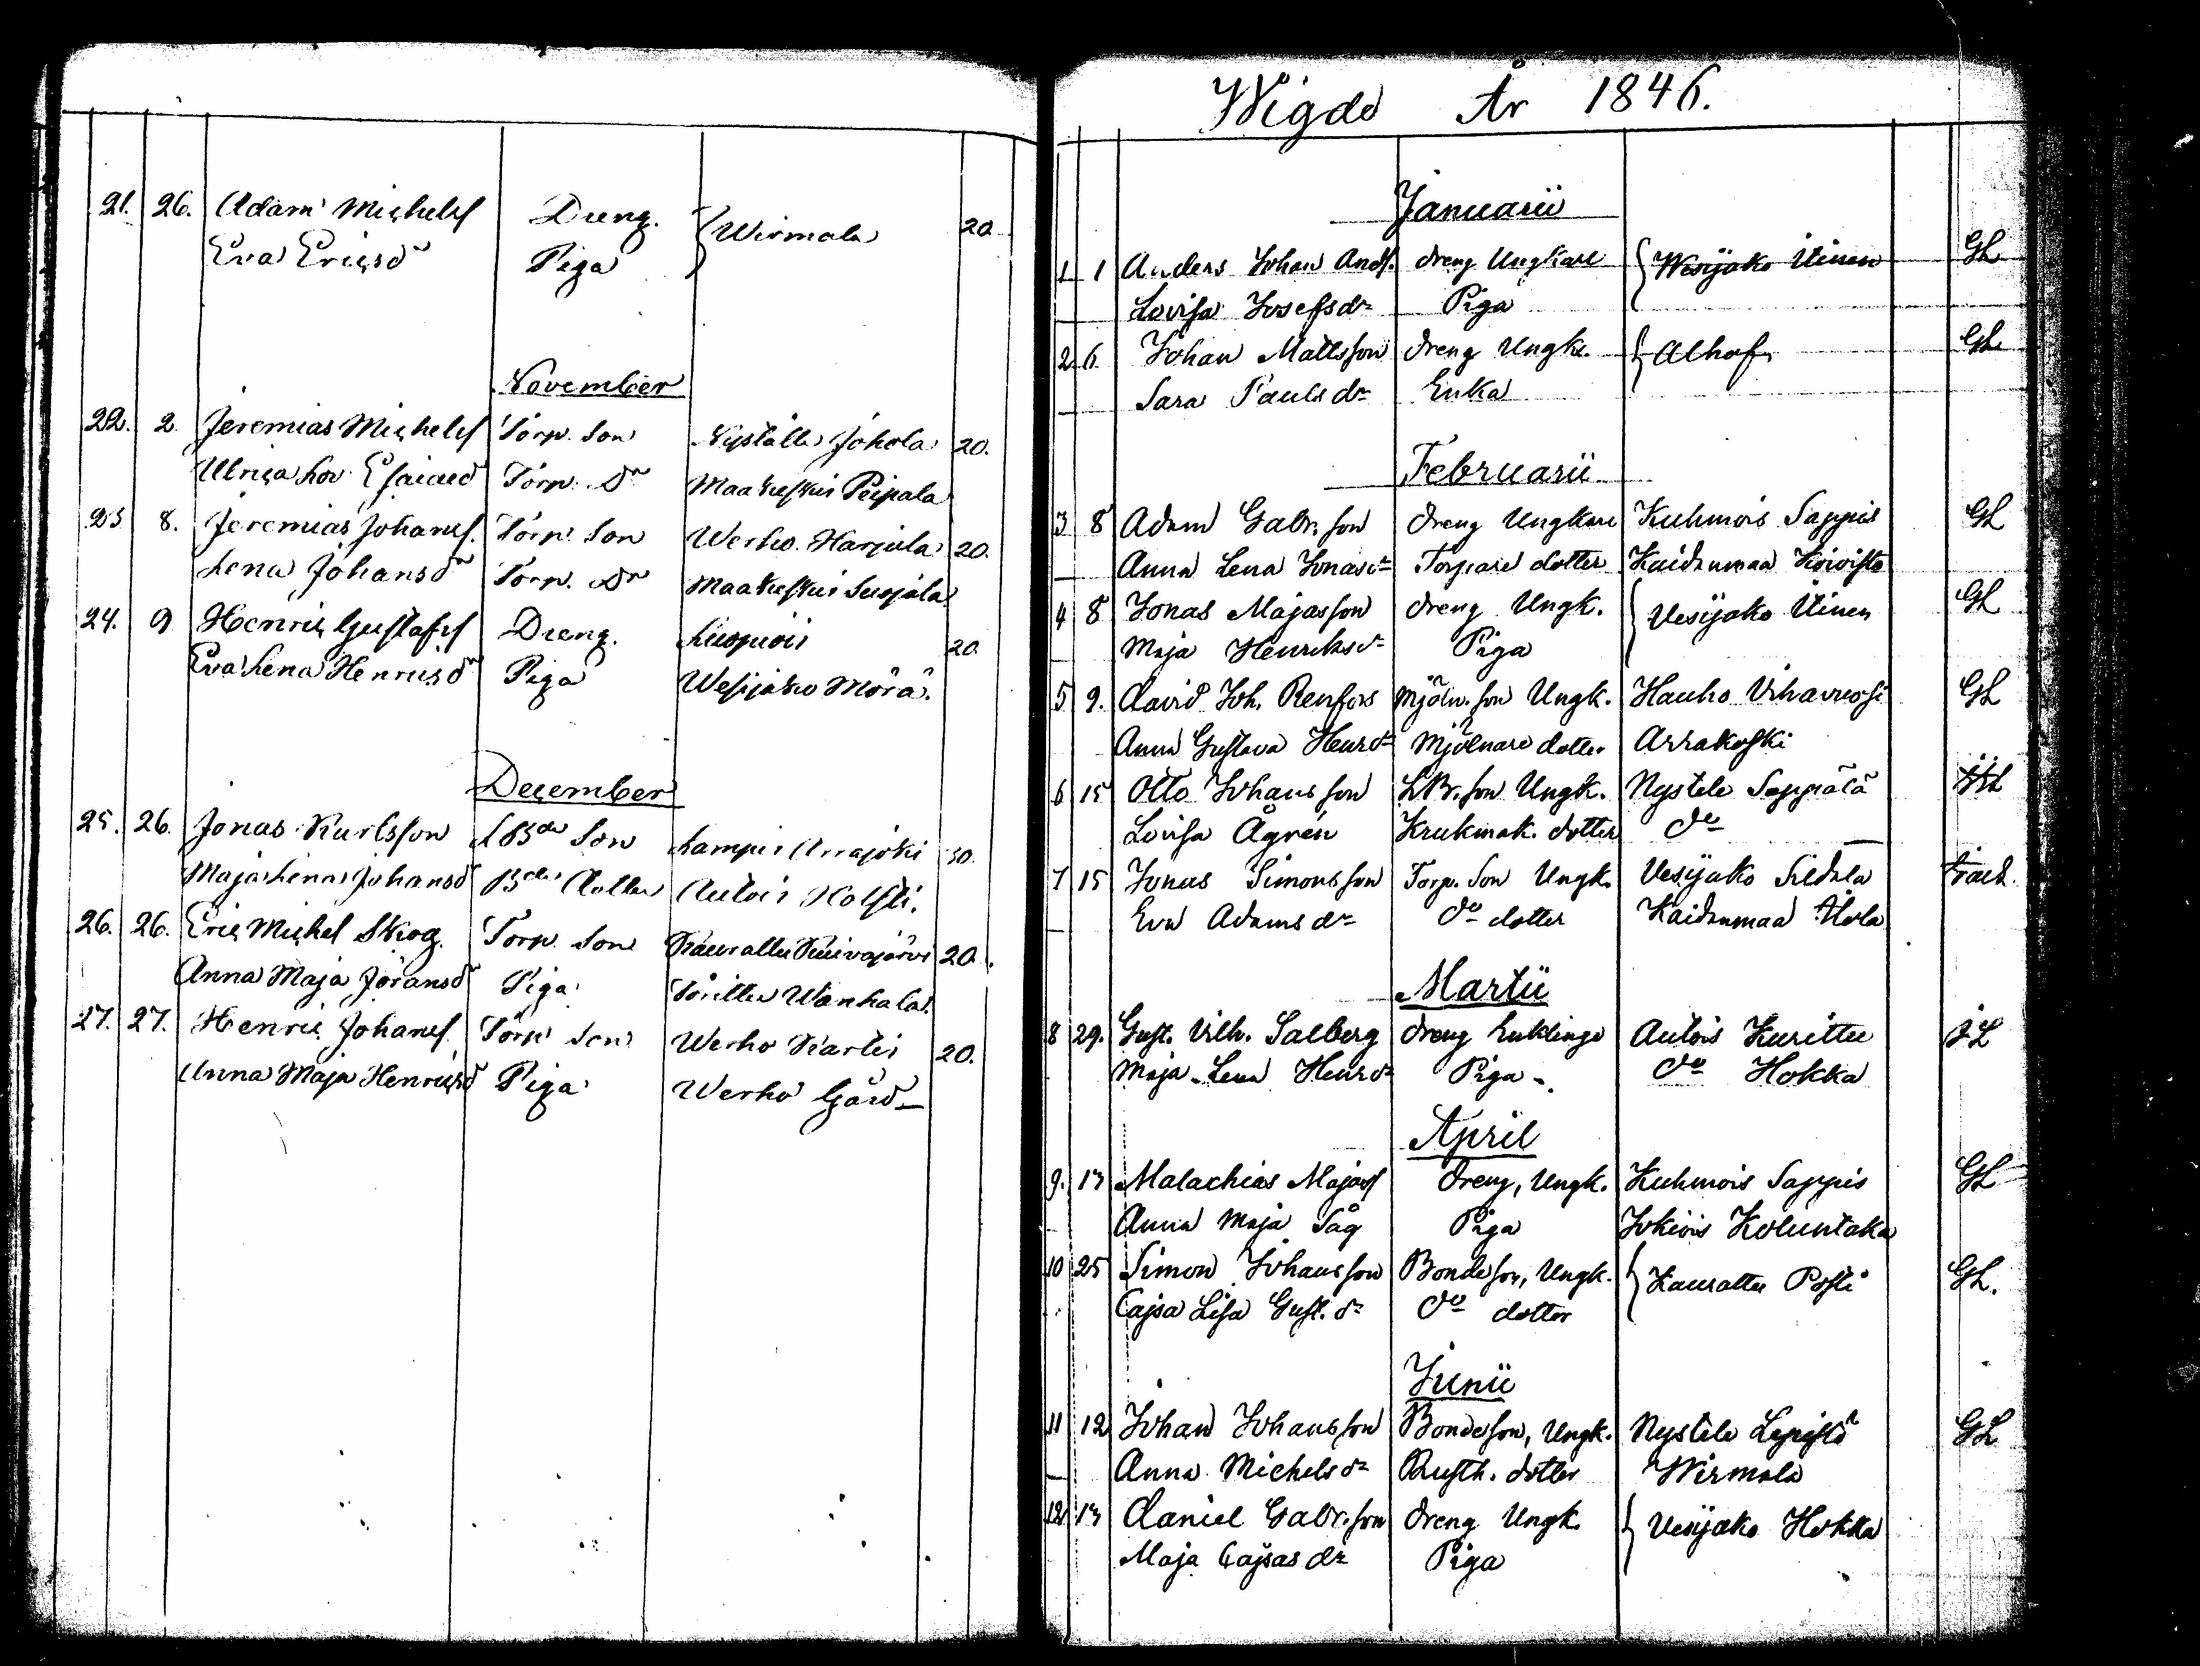 21. 26. Adam Michelss Dreng. Wirmala 20
Eva Ericsdr Piga
November
22. 2. Jeremias Michelss Torp. Son Nystölä Johola 20.
Ulrica Lov. Esaiaedr Torp. Dr Maakeskis Peipala
23 8. Jeremias Johanss. Torp. Son Werho Harjula 20.
Lena Johansdr Torp. Dr Maakeskis Suojala
24. 9 Henric Gustafss Dreng. 20
Eva Lena Henricsdr Piga Wesijako Mörä.
December
25. 26. Jonas Karlsson Son Lampis Arrajoki
Maja Lena Johansd Dotter Autois Holsti.
26. 26. Eric Michel Skog. Torp. Son 20.
Anna Maja Joransdr Piga Wanhala.
27. 27. Henric Johanss. Torp. Son Werho 20.
Anna Maja Henricsdr Piga Werho Gård
Wigde År 1846.
Januarii
1 1 Anders Johan Ands. dreng Ungkarl Wesijako Iinen GL
Lovisa Josefsdr Piga
2 6 Johan Mattsson dreng Ungk. Alhofs GL
Sara Paulsdr Enka
Februarii
3 8 Adam Gabr.son dreng Ungkare Kuhmois Sappis GL
Anna Lena Jonasdr Torpare dotter Kaidanmaa Koivisto
4 8 Jonas Majasson dreng Ungk. Vesijako Iinen GL
Maja Henriksdr Piga
5 9. David Joh. Renfors Mjöln. son Ungk. Hauho Vihavuosi GL
Anna Gustava Henrdr Mjölnare dotter Arrakoski
6 15 Otto Johansson LB. son Ungk. Nystele Seppälä
Lovisa Ågrén Krukmak. dotter do
7 15 Jonas Simonsson Torp. Son Ungk. Vesijako
Eva Adamsdr do dotter Kaidanmaa
Martii
8 29. Gust. Vilh. Salberg dreng Enklinge Autois Kurittu
Maja Lena Henrdr Piga do Hokka
April
9. 13 Malachias Majass dreng, Ungk. Kuhmois Sappis GL
Anna Maja Såg Piga Jokiois Koluntaka
10 25 Simon Johansson Bondeson, Ungk. Kaurattu Posti GL.
Cajsa Lisa Gust. dr do dotter
Junii
11 12 Johan Johansson Bondeson, Ungk. Nystele Lepistö GL
Anna Michelsdr Rusth. dotter Wirmala
12 13 Daniel Gabr.son dreng Ungk. Vesijako Hokka
Maja Cajsasdr Piga